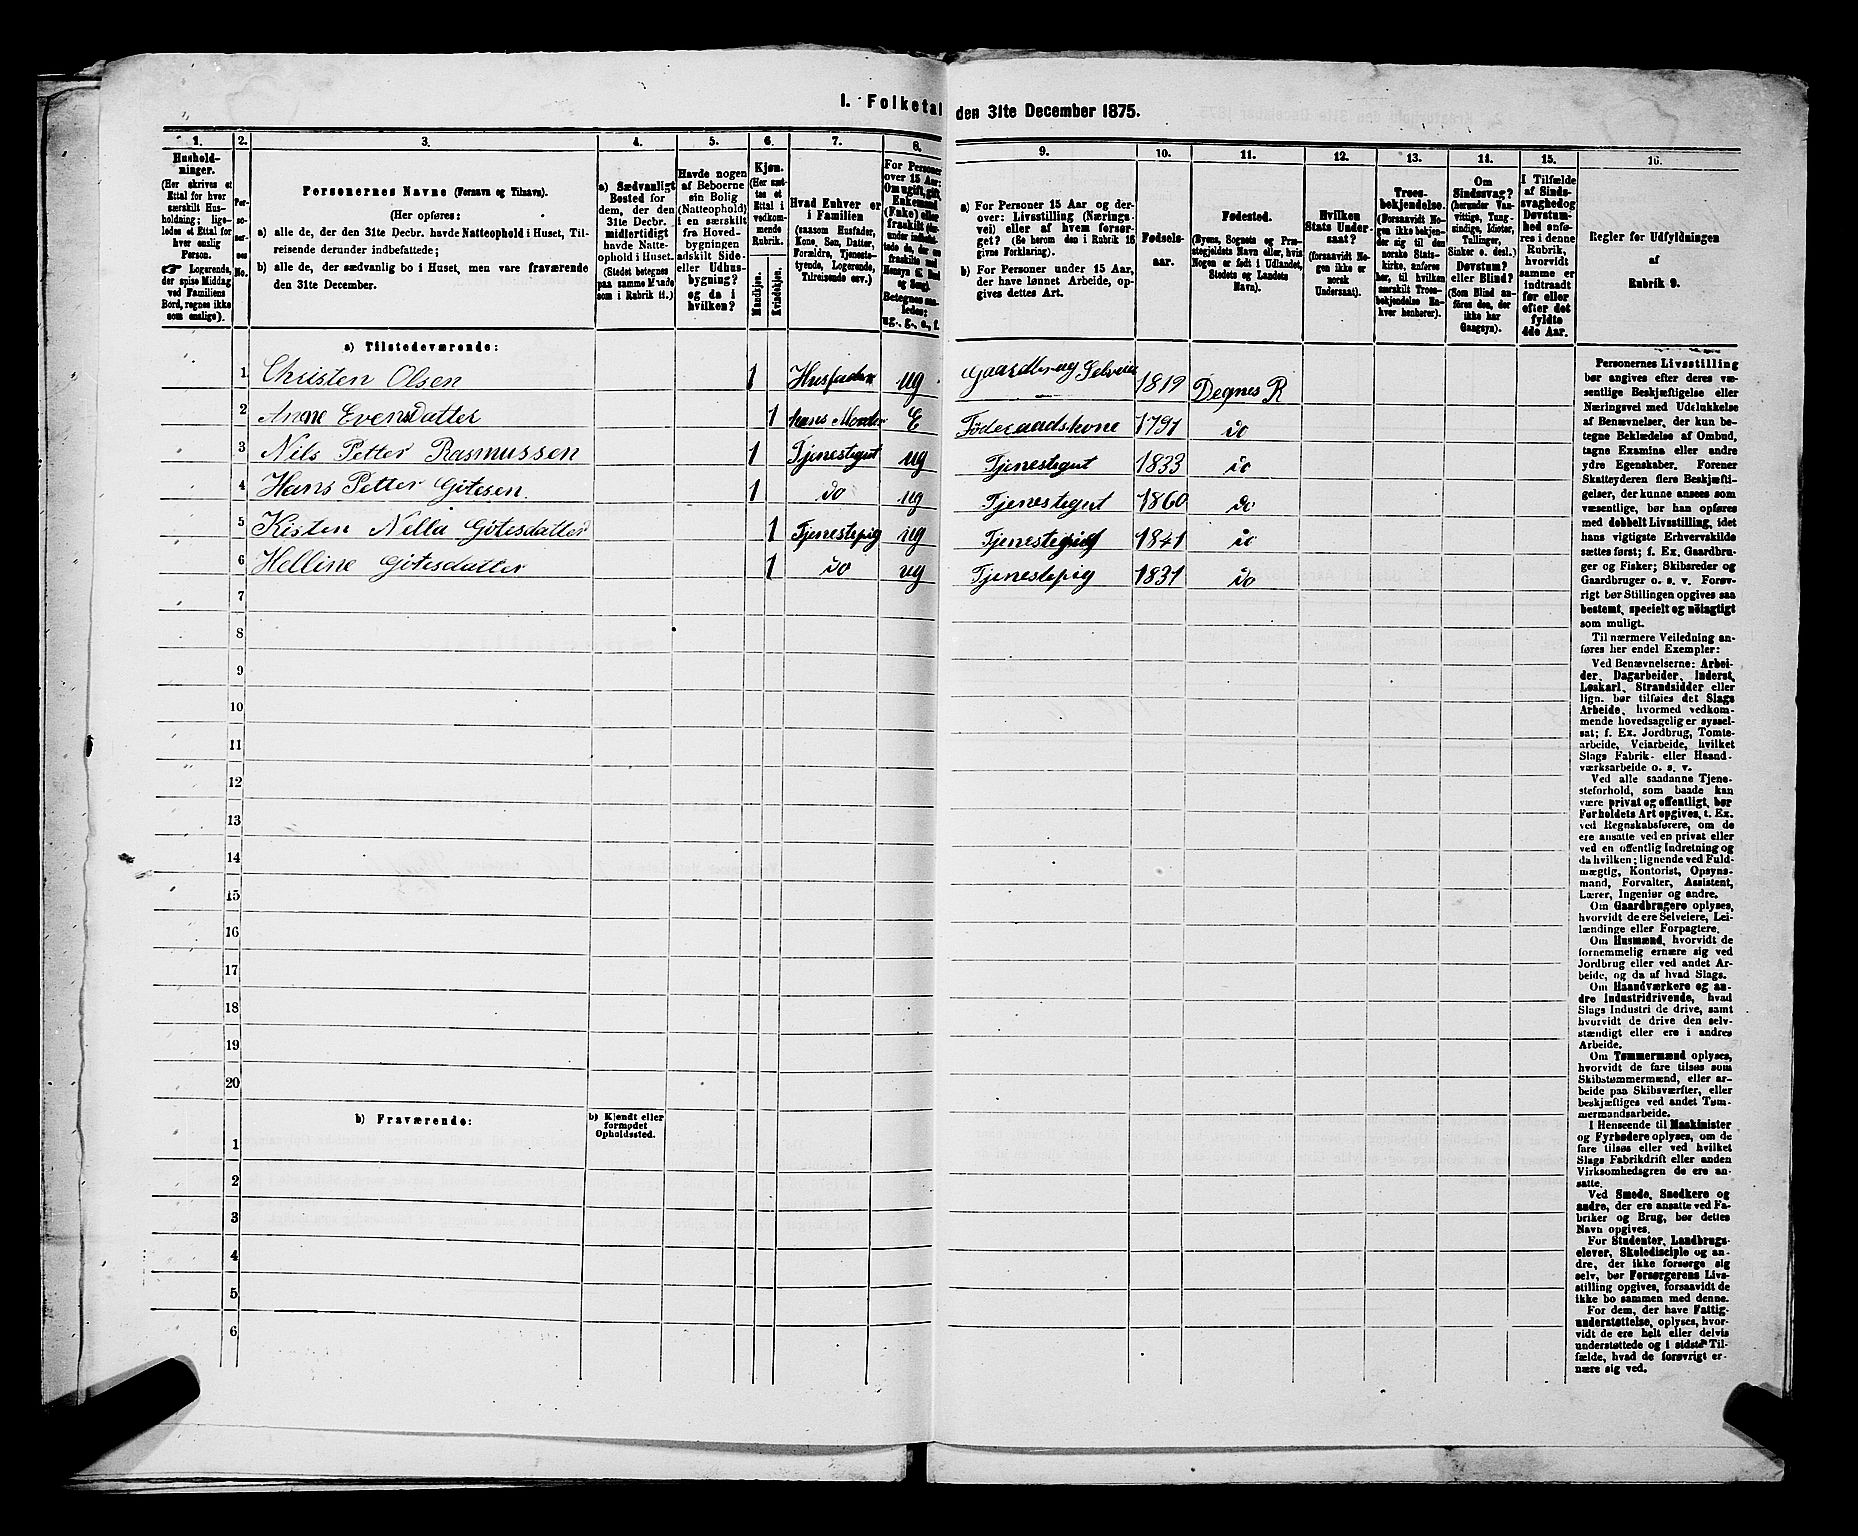 I. Folketal den 31te December 1875.
1.
Hushold-
ninger.
(Her skrives et
Ettal for hver
særskilt Hus-
holdning; lige-
ledes et Ettal for
hver enslig
Person.
Logerende,
der spise Middag
ved Familiens
Bord, regnes ikke
som enslige).
2.
Per-
so-
ner-
nes
No.
3.
Personernes Navne (Fornavn og Tilnavn).
(Her opføres:
a) alle de, der den 31te Decbr. havde Natteophold i Huset, Til-
reisende derunder indbefattede;
b) alle de, der sædvanlig bo i Huset, men vare fraværende
den 31te December.
4.
a) Sædvanligt
Bosted for
dem, der den
31te Decbr.
midlertidigt
havde Natte-
ophold i Huset.
(Stedet betegnes
paa samme Maade
som i Rubrik 11.)
5.
Havde nogen
af Beboerne
sin Bolig
(Natteophold)
i en særskilt
fra Hoved-
bygningen
adskilt Side-
eller Udhus-
bygning?
og da i
hvilken?
6.
Kjøn.
(Her sæt-
tes et
Ettal i
vedkom-
mende
Rubrik.
Mandkjøn.
Kvindekjøn.
7.
Hvad Enhver er
i Familien
(saasom Husfader,
Kone, Søn, Datter,
Forældre, Tjeneste-
tyende, Logerende,
Tilreisende osv.)
8.
For Personer
over 15 Aar:
Om ugift, gift,
Enkemand
(Enke) eller
fraskilt
Betegnes saa-
ledes:
ug., g., e., f.
9.
a) For Personer 15 Aar og der-
over: Livsstilling (Nærings-
vei) eller af hvem forsør-
get? (Se herom den i Rubrik 16
givne Forklaring).
b) For Personer under 15 Aar,
der have lønnet Arbeide, op-
gives dettes Art.
10.
Fødsels-
aar.
11.
Fødested.
(Byens, Sognets og Præ-
stegjeldets Navn eller, hvis
Nogen er født i Udlandet,
Stedets og Landets
Navn).
12.
Hvilken
Stats Under-
saat?
(forsaavidt No-
gen ikke er
norsk
Undersaat).
13.
Troes-
bekjendelse.
(Forsaavidt No-
gen ikke bekjen-
der sig til den
norske Stats-
kirke, anføres
her, til hvilken
særskilt Troes-
bekjendelse En-
hver henhører).
14.
Om
Sindssvag?
(herunder Van-
vittige, Tung-
sindige, Idioter,
Tullinger,
Sinker o. desl.)
Døvstum?
eller Blind?
(Som Blind an-
føres den, der
ikke har
Gangsyn).
15.
I Tilfælde
af Sinds-
svaghed og
Døvstum-
hed anfø-
res i denne
Rubrik,
hvorvidt
samme er
indtraadt
før eller
efter det
fyldte
4de Aar.
16.
Regler for Udfyldningen
af
Rubrik 9.
a) Tilstedeværende:
1. Christen Olsen 1 Husfader ug Gaardbrug Selveier 1819 Degnes R
2 Anne Evensdatter 1 hans Moder E Föderaadskone 1791 do
3 Nils Petter Rasmussen 1 Tjenestegut ug Tjenestegut 1833 do
4 Hans Petter Gitesen. 1 do ug Tjenestegut 1860 do
5 Kisten Nella Götesdatter 1 Tjenestepig ug Tjenestepig 1841 do
6 Helline Götesdatter 1 do ug Tjenestepig 1831 do
7
8
9
10
11
12
13
14
15
16
17
18
19
20
b) Fraværende:
b) Kjendt eller
formodet
Opholdssted.
1
2
3
4
5
6
Personernes Livsstilling
bør angives efter deres væ-
sentlige Beskjæftigelse eller
Næringsvei med Udelukkelse
af Benævnelser, der kun be-
tegne Beklædelse af Ombud,
tagne Examina eller andre
ydre Egenskaber. Forener
Skatteyderen flere Beskjæfti-
gelser, der kunne ansees som
væsentlige, bør han opføres
med dobbelt Livsstilling, idet
hans vigtigste Erhvervskilde
sættes først; f. Ex. Gaardbru-
ger og Fisker; Skibsreder og
Gaardbruger o. s. v. Forøv-
rigt bør Stillingen opgives saa
bestemt, specielt og nöiagtigt
som muligt.
Til nærmere Veiledning an-
føres her endel Exempler:
Ved Benævnelserne: Arbei-
der, Dagarbeider, Inderst,
Løskarl, Strandsidder eller
lign. bør tilføies det Slags
Arbeide, hvormed vedkom-
mende hovedsagelig er syssel-
sat; f. Ex. Jordbrug, Tomte-
arbeide, Veiarbeide, hvilket
Slags Fabrik- eller Haand-
værksarbeide o. s. v.
Ved alle saadanne Tjene-
steforhold, som baade kan
være privat og offentligt, bør
Forholdets Art opgives, t. Ex.
ved Regnskabsførere, om de
ere ansatte ved en privat eller
ved en offentlig Indretning og
da hvilken; lignende ved Fuld-
mægtig, Kontorist, Opsyns-
mand, Forvalter, Assistent,
Lærer, Ingeniør og andre.
Om Gaardbrugere oplyses,
hvorvidt de ere Selveiere, Lei-
lændinge eller Forpagtere.
Om Husmænd, hvorvidt de
fornemmelig ernære sig ved
Jordbrug eller ved andet Ar-
beide, og da af hvad Slags.
Om Haandværkere og an-
dre Industridrivende, hvad
Slags Industri de drive, samt
hvorvidt de drive den selv-
stændigt eller ere i andres
Arbeide.
Om Tømmermænd oplyses,
hvorvidt de fare tilsøs som
Skibstømmermænd, eller ar-
beide paa Skibsværfter, eller
beskjæftiges ved andet Tøm-
mermandsarbeide.
I Henseende til Maskinister
og Fyrbødere oplyses, om de
fare tilsøs eller ved hvilket
Slags Fabrikdrift eller anden
Virksomhedsgren de ere an-
satte.
Ved Smede, Snedkere og
andre, der ere ansatte ved Fa-
briker og Brug, bør dettes
Navn opgives.
For Studenter, Landbrugs-
elever, Skoledisciple og an-
dre, der ikke forsørge sig
selv, bør Forsørgerens Livs-
stilling opgives, forsaavidt de
ikke bo sammen med denne.
For dem, der have Fattig-
understøttelse, oplyses, hvor-
vidt de ere helt eller delvis
understøttede og i sidste Til-
fælde, hvad de forøvrigt er-
nære sig ved.